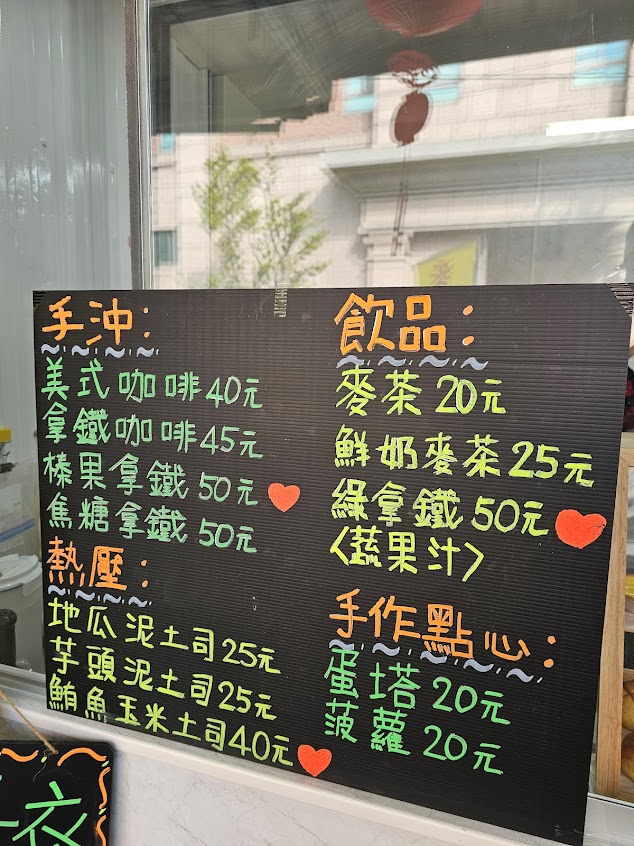 手沖：
美式咖啡40元
拿鐵咖啡45元
榛果拿鐵50元
焦糖拿鐵50元
熱壓：
地瓜泥土司25元
芋頭泥土司25元
鮪魚玉米土司40元
飲品：
麥茶20元
鮮奶麥茶25元
綠拿鐵50元
〈蔬果汁〉
手作點心：
蛋塔20元
菠蘿20元